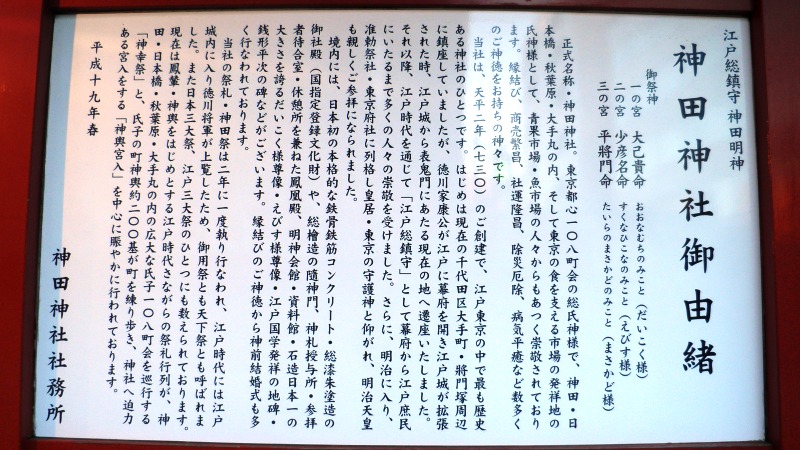 江戸総鎮守 神田明神
神田神社御由緒
御祭神
一の宮 大己貴命 おおなむちのみこと(だいこく様)
二の宮 少彦名命 すくなひこなのみこと(えびす様)
三の宮 平將門命 たいらのまさかどのみこと(まさかど様)
正式名称・神田神社。東京都心一〇八町会の総氏神様で、神田・日
本橋・秋葉原・大手丸の内、そして東京の食を支える市場の発祥地の
氏神様として、青果市場・魚市場の人々からもあつく崇敬されており
ます。縁結び、商売繁昌、社運隆昌、除災厄除、病気平癒など数多く
のご神徳をお持ちの神々です。
当社は、天平二年(七三〇)のご創建で、江戸東京の中で最も歴史
ある神社のひとつです。はじめは現在の千代田区大手町・將門塚周辺
に鎮座していましたが、徳川家康公が江戸に幕府を開き江戸城が拡張
された時、江戸城から表鬼門にあたる現在の地へ遷座いたしました。
それ以降、江戸時代を通じて「江戸総鎮守」として幕府から江戸庶民
にいたるまで多くの人々の崇敬を受けました。さらに、明治に入り、
准勅祭社・東京府社に列格し皇居・東京の守護神と仰がれ、明治天皇
も親しくご参拝になられました。
境内には、日本初の本格的な鉄骨鉄筋コンクリート・総漆朱塗造の
御社殿(国指定登録文化財)や、総檜造の随神門、神札授与所・参拝
者待合室・休憩所を兼ねた鳳凰殿、明神会館・資料館・石造日本一の
大きさを誇るだいこく様尊像・えびす様尊像・江戸国学発祥の地碑・
銭形平次の碑などがございます。縁結びのご神徳から神前結婚式も多
く行なわれております。
当社の祭礼・神田祭は二年に一度執り行なわれ、江戸時代には江戸
城内に入り徳川将軍が上覧したため、御用祭とも天下祭とも呼ばれま
した。また日本三大祭、江戸三大祭のひとつにも数えられております。
現在は鳳輦・神輿をはじめとする江戸時代さながらの祭礼行列が、神
田・日本橋・秋葉原・大手丸の内の広大な氏子一〇八町会を巡行する
「神幸祭」と、氏子の町神輿約二〇〇基が町を練り歩き、神社へ迫力
ある宮入をする「神輿宮入」を中心に賑やかに行われております。
平成十九年春
神田神社社務所